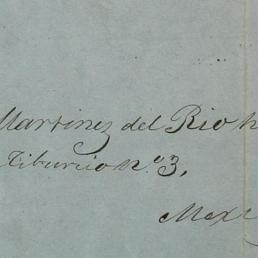 Martinez del Rio h
Tiburcio N.º 3,
Mexi